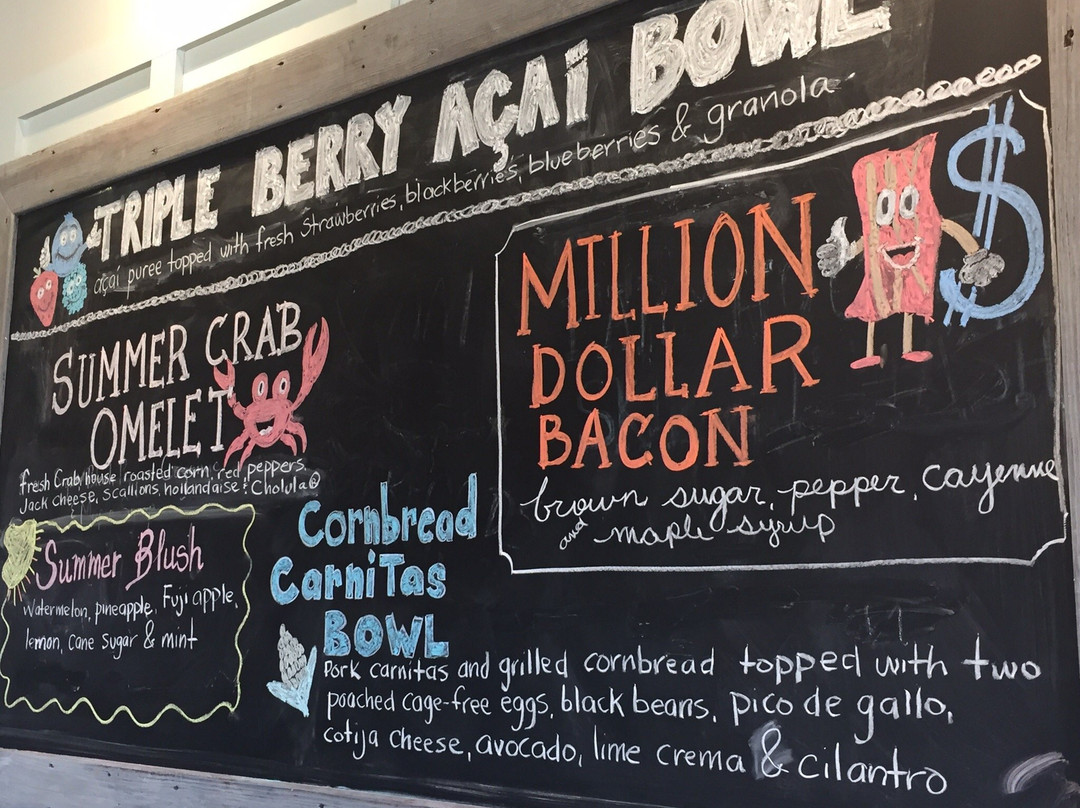 TRIPLE BERRY AÇAÍ BOWL
açaí puree topped with fresh strawberries, blackberries, blueberries & granola
SUMMER CRAB
OMELET
fresh Crab, house roasted corn, red peppers,
Jack cheese, scallions, hollandaise & Cholula®
MILLION
DOLLAR
BACON
$
brown sugar, pepper, cayenne
and maple syrup
Summer Blush
Watermelon, pineapple, Fuji apple,
lemon, cane sugar & mint
Cornbread
Carnitas
BOWL
Pork carnitas and grilled cornbread topped with two
poached cage-free eggs, black beans, pico de gallo,
cotija cheese, avocado, lime crema & cilantro